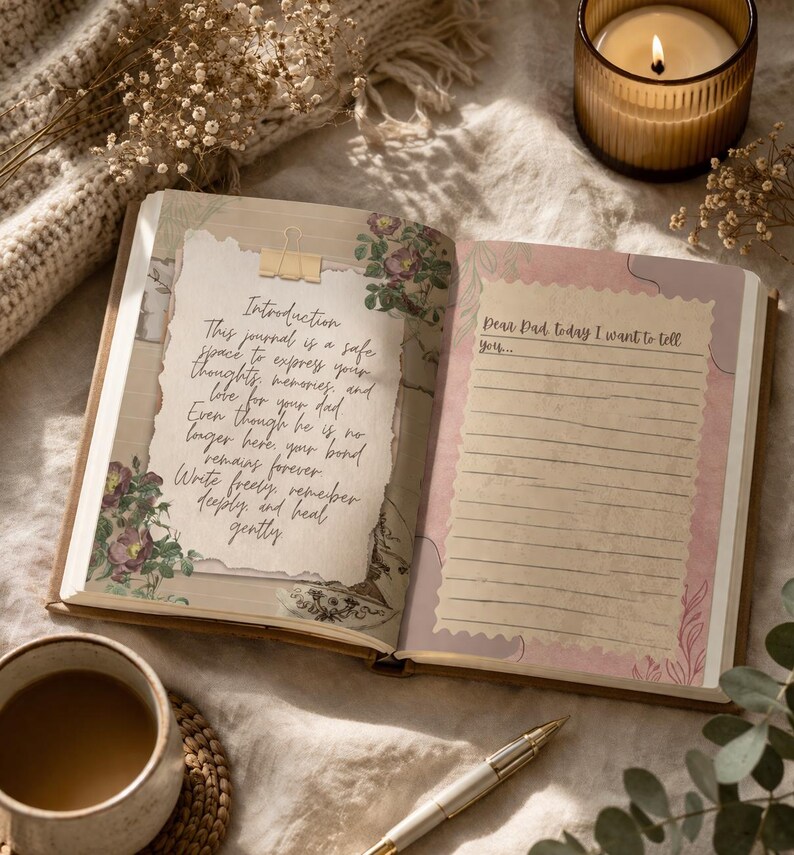 Introduction
This journal is a safe
space to express your
thoughts, memories, and
love for your dad.
Even though he is no
longer here, your bond
remains forever.
Write freely, remember
deeply, and heal
gently.
Dear Dad, today I want to tell
you...